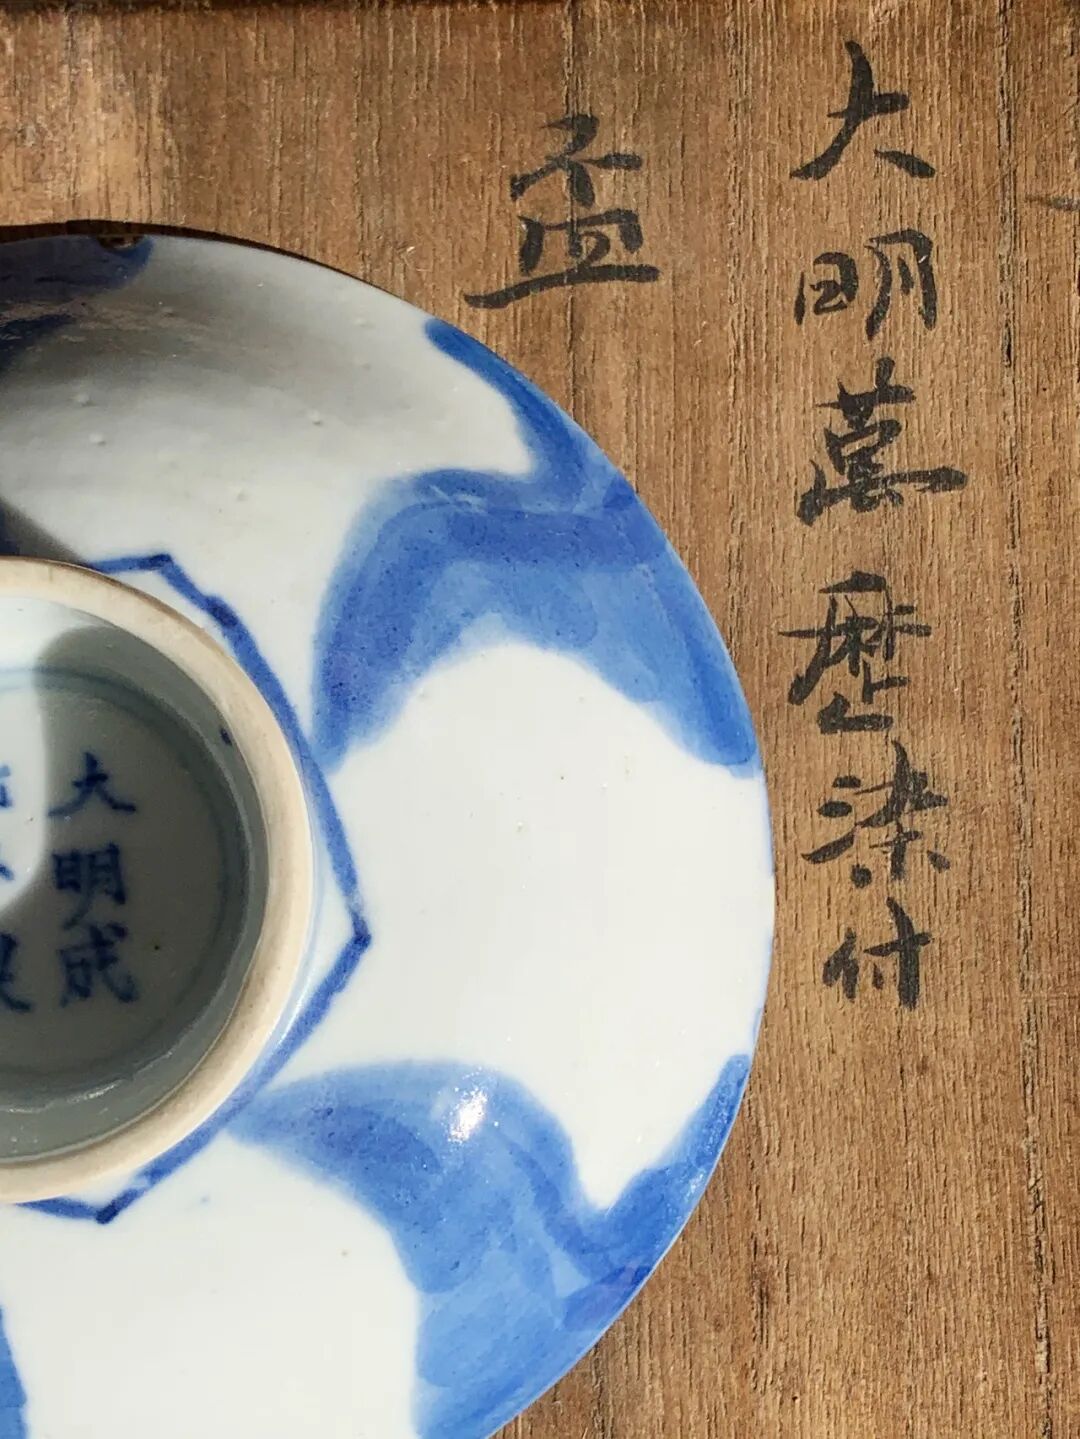 大明萬歷染付
盃
大明成